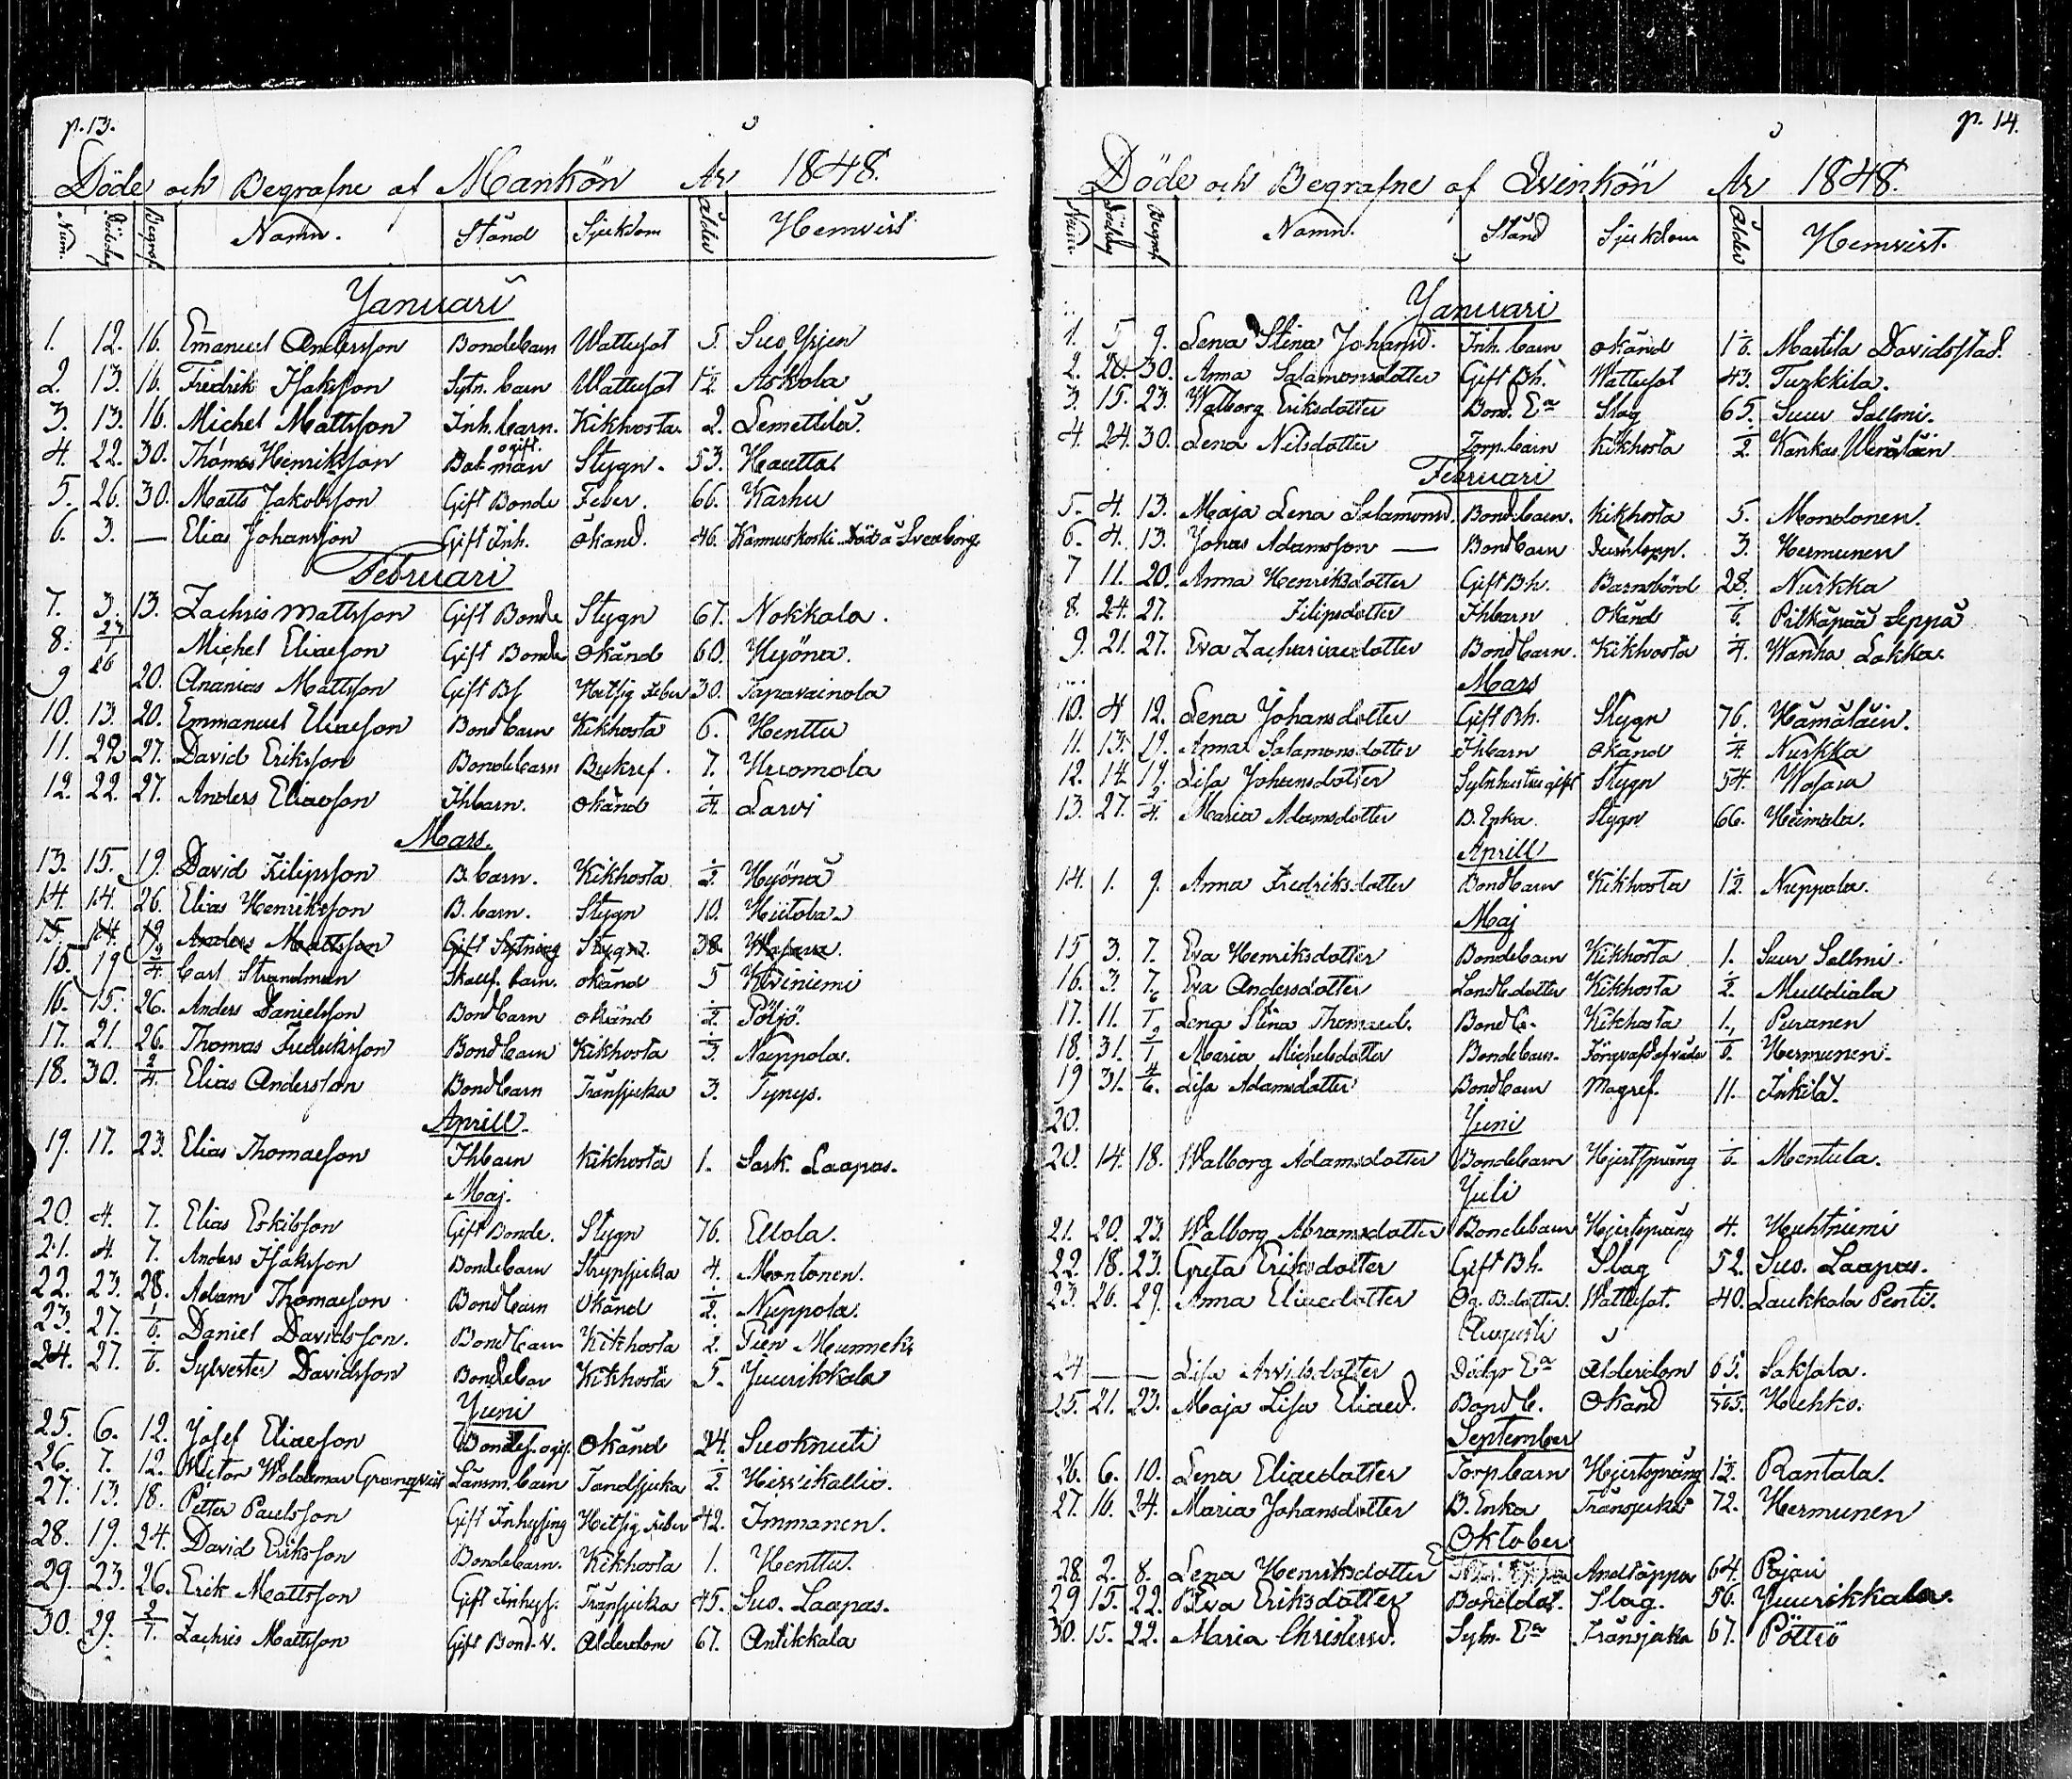 p. 13.
Döde och Begrafne af Mankön År 1848.
Num. Dödsdag Begraf Namn. Stånd Sjukdom Ålder Hemvist
Januari
1. 12. 16. Emanuel Andersson Bondebarn Wattusot 5. Suo Yrjen
2. 13. 16. Fredrik Isaksson Sytn. barn Wattusot 1 1/2 Askola
3. 13. 16. Michel Mattsson Inh. barn. Kikhosta. 2. Lemettilä.
4. 22. 30. Thomas Henriksson ogift Stygn. 53. Hautta
5. 26. 30. Matts Jakobsson Gift Bonde Feber. 66. Karhu
6. 3. — Elias Johansson Gift Inh. okänd. 46. Kannuskoski Död å Sveaborg
Februari
7. 3. 13. Zachris Mattsson Gift Bonde Stygn 67. Nokkala.
8. 23/1 Michel Eliaesson Gift Bonde Okänd 60. Hyönä.
9 26 20. Ananias Mattsson Gift Bf Hetsig Feber 30. Tapavainola
10. 13. 20. Emmanuel Eliaesson Bondbarn Kikhosta 6. Henttu
11. 22 27. David Eriksson Bondebarn Bukref. 7. Huomola
12. 22. 27. Anders Eliaesson Ihbarn. okänd 1/4. Larvi
Mars.
13. 15. 19. David Filipsson B. barn. Kikhosta 1/2 Hyönä
14. 14. 26. Elias Henriksson B. barn. Stygn 10. Hiitola
15. 14. 19 Anders Mattsson Gift Sytning Stygn. 38.
15. 19 2/4. Carl Strandman barn. okänd 5 Kiviniemi
16. 15. 26. Anders Danielsson Bondbarn okänd 1/2. Pöljö.
17. 21. 26. Thomas Fredriksson Bondbarn Kikhosta 1/3. Nuppola.
18. 30. 2/4. Elias Andersson Bondbarn Trånsjuka 3. Tynys.
Aprill.
19. 17. 23. Elias Thomaesson Ihbarn Kikhosta 1. Sark. Laapas.
Maj.
20. 4. 7. Elias Eskilsson Gift Bonde. Stygn 76. Ellola.
21. 4. 7. Anders Isaksson Bondebarn Strypsjuka 4. Montonen.
22. 23. 28. Adam Thomaesson Bondbarn Okänd 1/2. Nuppola.
23. 27. 1/6. Daniel Davidsson. Bondbarn Kikhosta 2. Pien
24. 27. 1/6. Sylvester Davidsson Bondebar Kikhosta 5. Juurikkala
Juni
25. 6. 12. Josef Eliaesson Okänd 24. Suoknuuti
26. 7. 12. Wictor Woldemar Granqvist Länsm. barn Tandsjuka 1/2. Hirvikallio.
27. 13. 18. Petter Paulsson Gift Inhysing Hetsig Feber 42. Immanen.
28. 19. 24. David Eriksson Bondebarn. Kikhosta 1. Henttu.
29. 23. 26. Erik Mattsson Gift Inhys. Trånsjuka 45. Suo. Laapas.
30. 29. 2/7. Zachris Mattsson Gift Bond. Alderdom 67. Antikkala
p. 14.
Döde och Begrafne af Qvinkön År 1848.
Num. Dödsdag Begraf Namn. Stånd Sjukdom Ålder Hemvist.
Januari
1. 5 9. Lena Stina Johansd. Inh. barn okänd 1/6. Martila Davidsstad.
2. 20. 30. Anna Salamonsdotter Gift Bh. Wattusot 43. Turkkila.
3. 15. 23. Walborg Eriksdotter Bond. Ea Slag 65. Suur Sallmi.
4. 24. 30. Lena Nilsdotter Torp. barn Kikhosta 1/2 Kankas Wenäläin
Februari
5. 4. 13. Maja Lena Salamonsd. Bondebarn. Kikhosta 5. Montonen.
6. 4. 13. Jonas Adamsson — Bondbarn 3. Hermunen
7 11. 20. Anna Henriksdotter Gift Bh. Barnsbörd 28. Nurkka
8. 24. 27. Filipsdotter Ihbarn Okänd 1/6. Pitkäpää Seppä
9. 21. 27. Eva Zachariaedotter Bondbarn. Kikhosta 1/4. Wanha Lakka.
Mars
10. 4 12. Lena Johansdotter Gift Bh. Stygn 76. Hämäläin.
11. 13. 19. Anna Salamonsdotter Ihbarn okänd 1/4. Nurkka
12. 14 19. Lisa Johansdotter Stygn 54.
13. 27. 2/4. Maria Adamsdotter B. Enka. Stygn 66. Heimala.
Aprill
14. 1. 9. Anna Fredriksdotter Bondbarn Kikhosta 1 1/2. Nuppola.
Maj
15 3. 7. Eva Henriksdotter Bondebarn Kikhosta 1. Suur Sallmi.
16. 3. 7. Eva Andersdotter Kikhosta 1/2.
17. 11. Lena Stina Thomaed. Bondb. Kikhosta 1. Puranen
18. 31. Maria Michelsdotter Bondebarn. Hermunen.
19 31. 4/6. Lisa Adamsdotter Bondbarn Magref. 11. Inkilä.
20. Juni
20. 14. 18. Walborg Adamsdotter Bondebarn Hjertsprång 1/6. Mentula.
Juli
21. 20. 23. Walborg Abramsdotter Bondebarn Hjertsprång 4. Huhtniemi
22. 18. 23. Greta Eriksdotter Gift Bh. Slag 52. Suo. Laapas.
23. 26. 29. Anna Eliaedotter Og. Bdotter. Wattusot. 40. Laukkala Pentti.
Augusti
24 — — Lisa Arvidsdotter Ea Alderdom 65. Saksala.
25. 21. 23. Maja Lisa Eliaed. Bondb. Okänd Huhko.
September
26. 6. 10. Lena Eliaedotter Torpbarn Hjertsprång 1 1/2. Rantala.
27. 16. 24. Maria Johansdotter B. Enka Trånsjuka 72. Hermunen
Oktober
28. 2. 8. Lena Henriksdotter Andtäppa 64.
29 15. 22. Eva Eriksdotter Slag. 56. Juurikkala.
30. 15. 22. Maria Christersd. Sytn. Ea Trånsjuka 67. Pöttiö